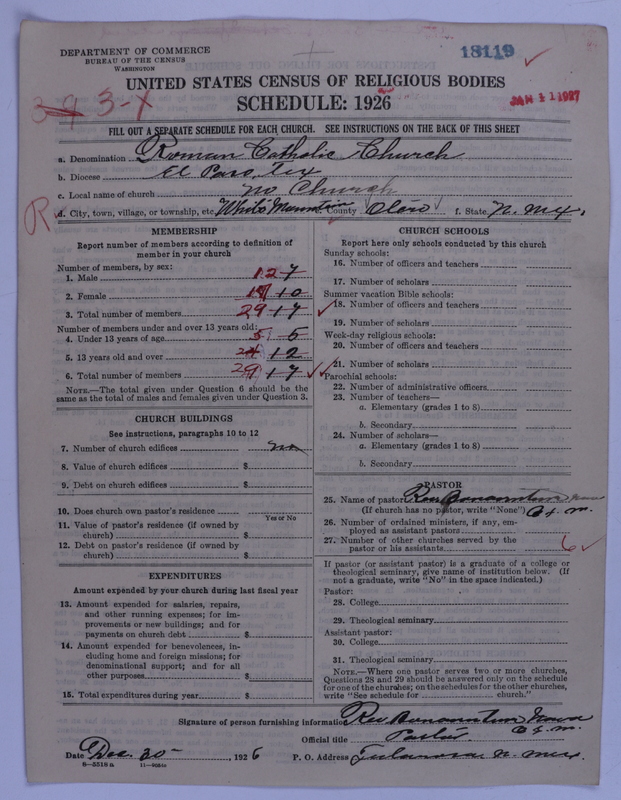 DEPARTMENT OF COMMERCE
BUREAU OF THE CENSUS
WASHINGTON
18119
UNITED STATES CENSUS OF RELIGIOUS BODIES
SCHEDULE: 1926
3-X
JAN 11 1927
FILL OUT A SEPARATE SCHEDULE FOR EACH CHURCH. SEE INSTRUCTIONS ON THE BACK OF THIS SHEET
a. Denomination Roman Catholic Church
b. Diocese El Paso, Tex
c. Local name of church No Church
d. City, town, village, or township, etc. White Mountain e. County Otero f. State N. Mex.
MEMBERSHIP
Report number of members according to definition of member in your church
Number of members, by sex:
1. Male 12 7
2. Female 10
3. Total number of members 29 17
Number of members under and over 13 years old:
4. Under 13 years of age 5 5
5. 13 years old and over 24 12
6. Total number of members 29 17
NOTE.—The total given under Question 6 should be the same as the total of males and females given under Question 3.
CHURCH BUILDINGS
See instructions, paragraphs 10 to 12
7. Number of church edifices no
8. Value of church edifices $
9. Debt on church edifices $
10. Does church own pastor's residence
Yes or No
11. Value of pastor's residence (if owned by church) $
12. Debt on pastor's residence (if owned by church) $
EXPENDITURES
Amount expended by your church during last fiscal year
13. Amount expended for salaries, repairs, and other running expenses; for improvements or new buildings; and for payments on church debt $
14. Amount expended for benevolences, including home and foreign missions; for denominational support; and for all other purposes $
15. Total expenditures during year $
CHURCH SCHOOLS
Report here only schools conducted by this church
Sunday schools:
16. Number of officers and teachers
17. Number of scholars
Summer vacation Bible schools:
18. Number of officers and teachers
19. Number of scholars
Week-day religious schools:
20. Number of officers and teachers
21. Number of scholars
Parochial schools:
22. Number of administrative officers
23. Number of teachers—
a. Elementary (grades 1 to 8)
b. Secondary
24. Number of scholars—
a. Elementary (grades 1 to 8)
b. Secondary
PASTOR
25. Name of pastor Rev. Bonaventure Nava
(If church has no pastor, write "None") O.f.m.
26. Number of ordained ministers, if any, employed as assistant pastors
27. Number of other churches served by the pastor or his assistants 6
If pastor (or assistant pastor) is a graduate of a college or theological seminary, give name of institution below. (If not a graduate, write "No" in the space indicated.)
Pastor:
28. College
29. Theological seminary
Assistant pastor:
30. College
31. Theological seminary
NOTE.—Where one pastor serves two or more churches, Questions 28 and 29 should be answered only on the schedule for one of the churches; on the schedules for the other churches, write "See schedule for church."
Signature of person furnishing information Rev. Bonaventure Nava O.f.m.
Official title Pastor
Date Dec. 30, 1926 P. O. Address Tularosa N. Mex.
8—5518a